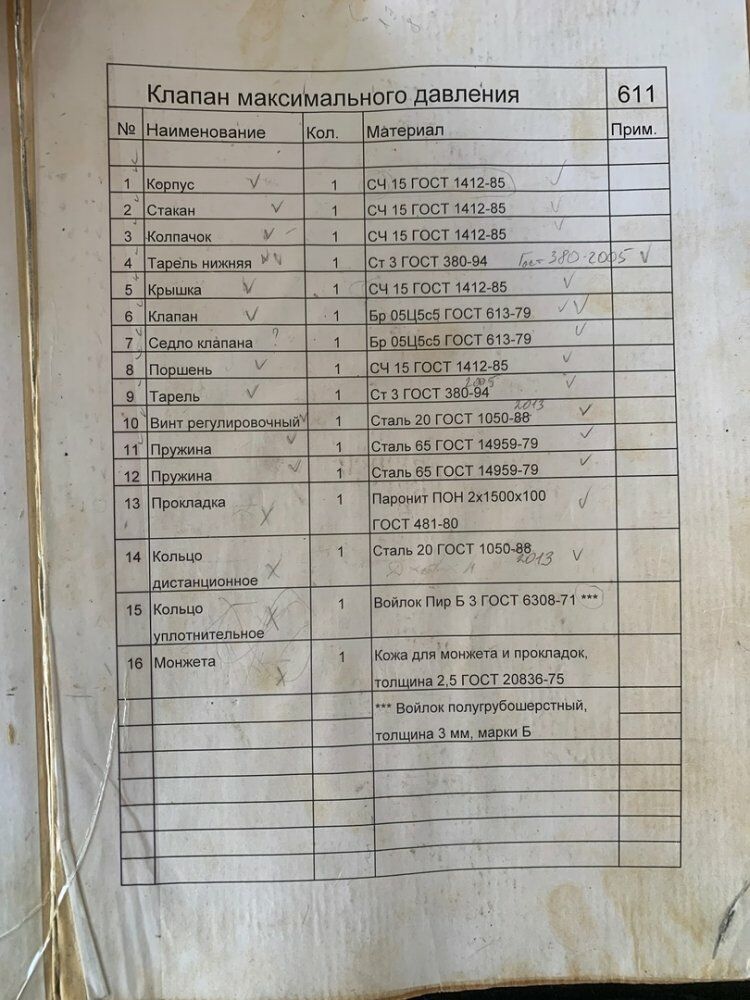 Клапан максимального давления 611
№ Наименование Кол. Материал Прим.
1 Корпус 1 СЧ 15 ГОСТ 1412-85
2 Стакан 1 СЧ 15 ГОСТ 1412-85
3 Колпачок 1 СЧ 15 ГОСТ 1412-85
4 Тарель нижняя 1 Ст 3 ГОСТ 380-94 Гост 380-2005
5 Крышка 1 СЧ 15 ГОСТ 1412-85
6 Клапан 1 Бр 05Ц5с5 ГОСТ 613-79
7 Седло клапана ? 1 Бр 05Ц5с5 ГОСТ 613-79
8 Поршень 1 СЧ 15 ГОСТ 1412-85
2005
9 Тарель 1 Ст 3 ГОСТ 380-94
2013
10 Винт регулировочный 1 Сталь 20 ГОСТ 1050-88
11 Пружина 1 Сталь 65 ГОСТ 14959-79
12 Пружина 1 Сталь 65 ГОСТ 14959-79
13 Прокладка 1 Паронит ПОН 2х1500х100
ГОСТ 481-80
14 Кольцо 1 Сталь 20 ГОСТ 1050-88
дистанционное 2013
15 Кольцо 1 Войлок Пир Б 3 ГОСТ 6308-71 ***
уплотнительное
16 Монжета 1 Кожа для монжета и прокладок,
толщина 2,5 ГОСТ 20836-75
*** Войлок полугрубошерстный,
толщина 3 мм, марки Б